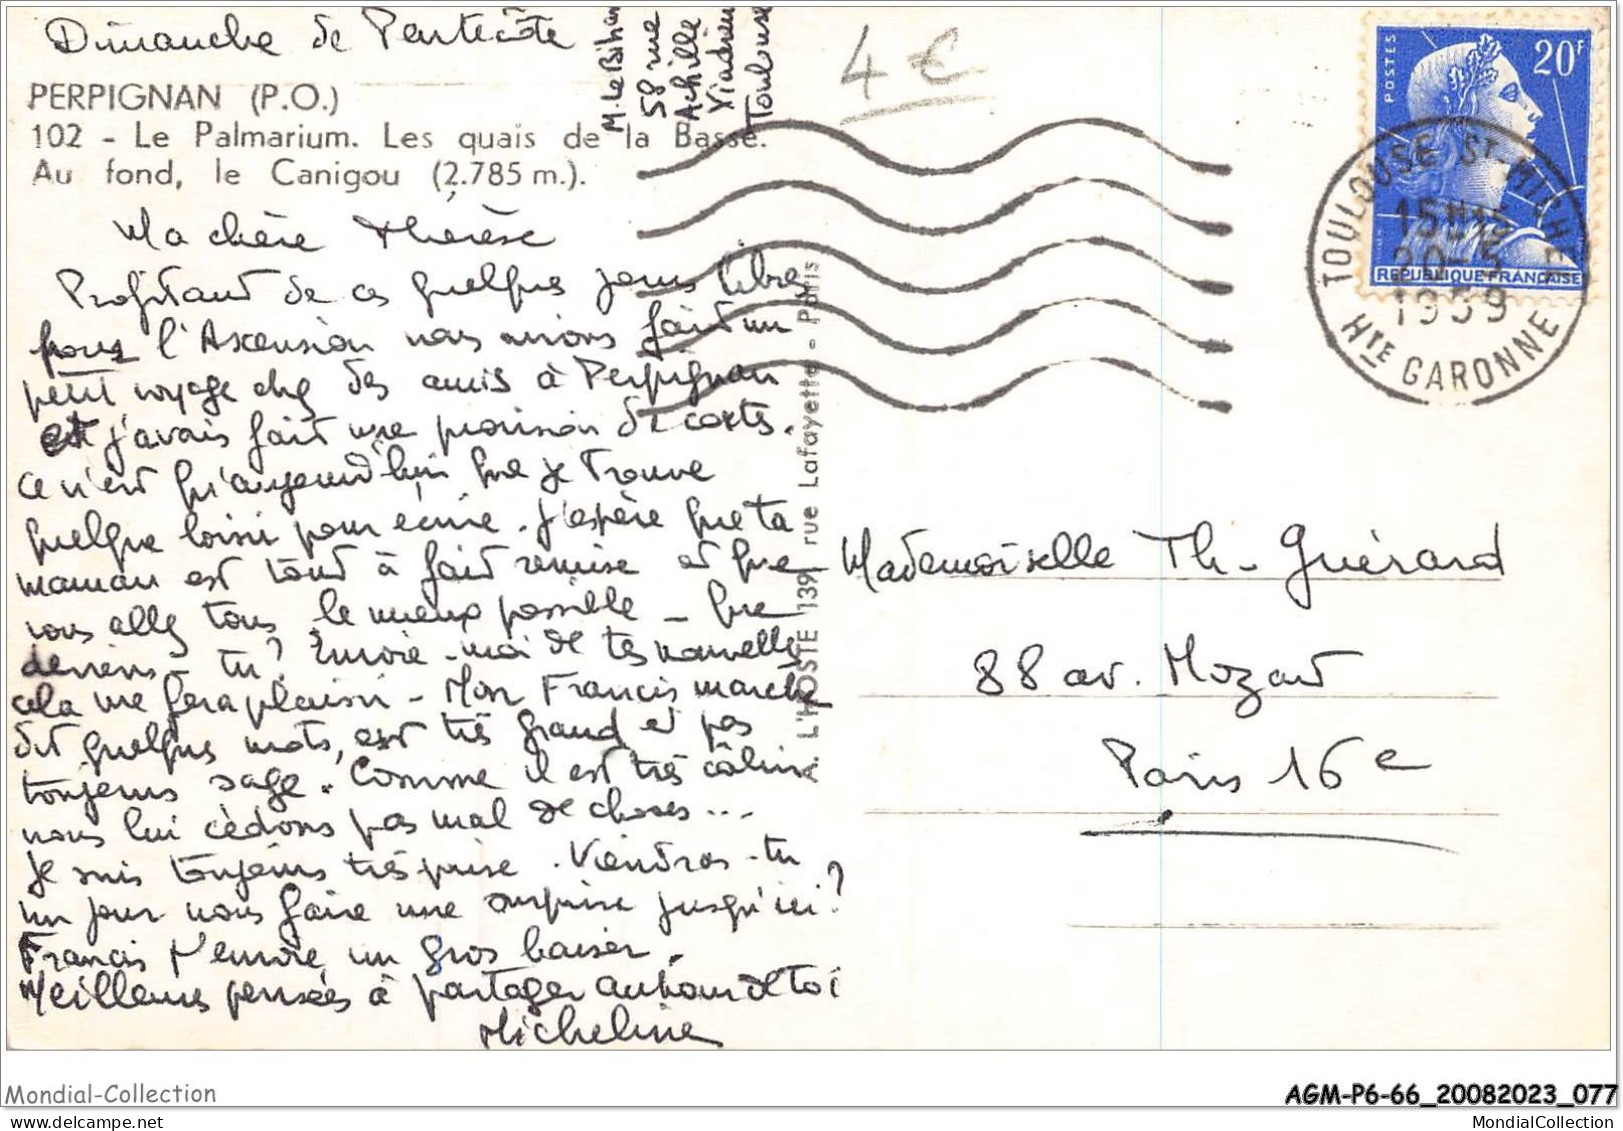 Dimanche de Pentecôte
M. Le Bihan
58 rue
Achille
Viadieu
Toulouse
4 €
PERPIGNAN (P.O.)
102 - Le Palmarium. Les quais de la Basse.
Au fond, le Canigou (2.785 m.).
Ma chère Thérèse
Profitant de ces quelques jours libres
pour l'Ascension nous avions fait un
petit voyage chez des amis à Perpignan
et j'avais fait une provision de cartes.
Ce n'est qu'aujourd'hui que je trouve
quelque loisir pour écrire. J'espère que ta
maman est tout à fait remise et que
vous allez tous le mieux possible - Que
deviens-tu? Envoie-moi de tes nouvelles
cela me fera plaisir - Mon Francis marche
dit quelques mots, est très grand et pas
toujours sage. Comme il est très câlin
nous lui cédons pas mal de choses...
Je suis toujours très prise. Viendras-tu
un jour nous faire une surprise jusqu'ici?
Francis t'envoie un gros baiser.
Meilleures pensées à partager autour de toi
Micheline
A. L'HOSTE 139, rue Lafayette - Paris
POSTES
20F
REPUBLIQUE FRANÇAISE
TOULOUSE ST-MICHEL
15H15
20-5
1959
HTE GARONNE
Mademoiselle Th. Guérard
88 av. Mozart
Paris 16e
Mondial-Collection
AGM-P6-66_20082023_077
MondialCollection